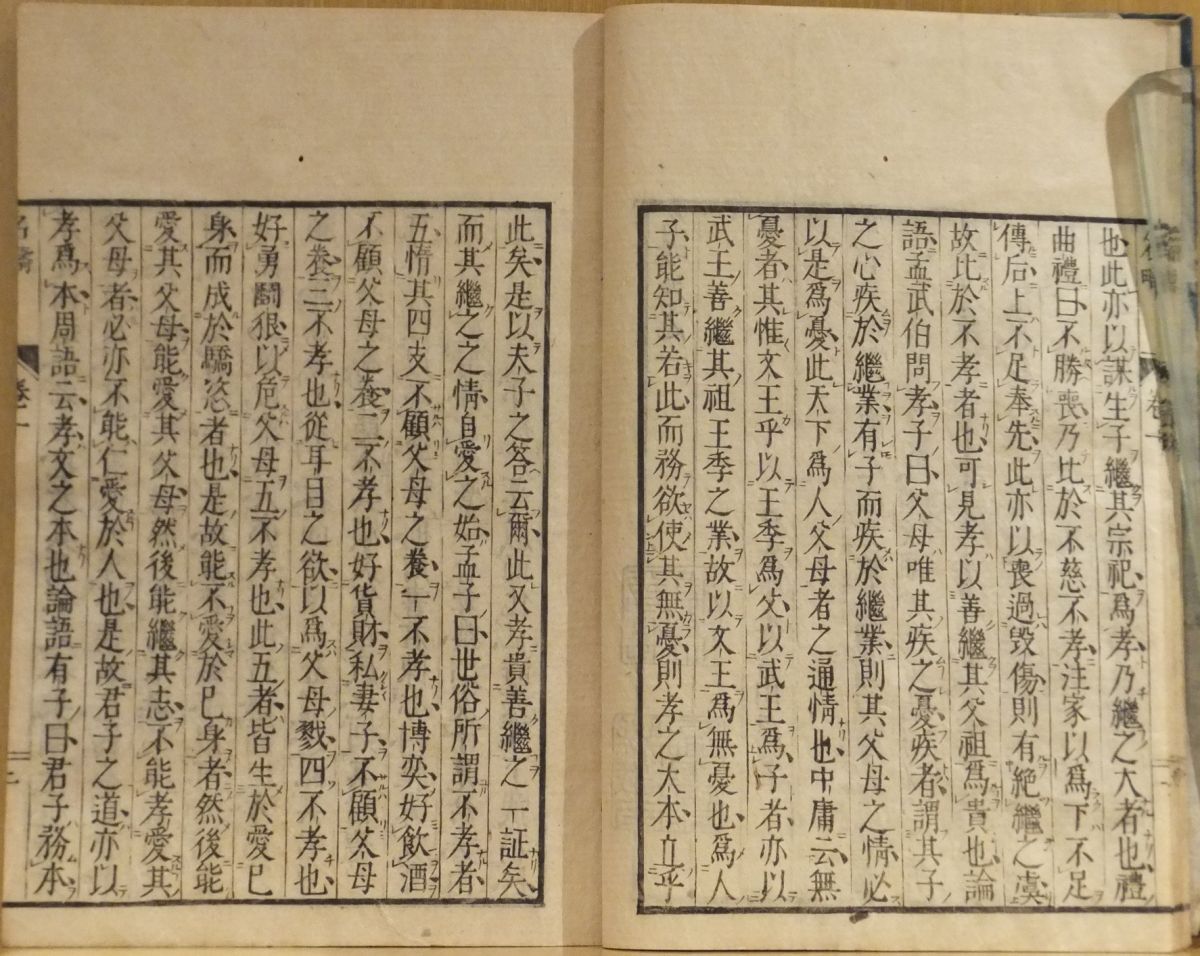 也此亦以謀生子繼其宗祀爲孝乃繼之大者也禮
曲禮曰不勝喪乃比於不慈不孝注家以爲下不足
傳后上不足奉先此亦以喪過毀傷則有絶繼之虞
故比於不孝者也可見孝以善繼其父祖爲貴也論
語孟武伯問孝子曰父母唯其疾之憂疾者謂其子
之心疾於繼業有子而疾於繼業則其父母之情必
以是爲憂此天下爲人父母者之通情也中庸云無
憂者其惟文王乎以王季爲父以武王爲子者亦以
武王善繼其祖王季之業故以文王爲無憂也爲人
子能知其若此而務欲使其無憂則孝之大本立乎
此矣是以夫子之答云爾此又孝貴善繼之一証矣
而其繼之之情自愛之始孟子曰世俗所謂不孝者
五惰其四支不顧父母之養一不孝也博奕好飲酒
不顧父母之養二不孝也好貨財私妻子不顧父母
之養三不孝也從耳目之欲以爲父母戮四不孝也
好勇鬪狠以危父母五不孝也此五者皆生於愛己
身而成於驕恣者也是故能不愛於己身者然後能
愛其父母能愛其父母然後能繼其志不能孝愛其
父母者必亦不能仁愛於人也是故君子之道亦以
孝爲本周語云孝文之本也論語有子曰君子務本
卷一 二